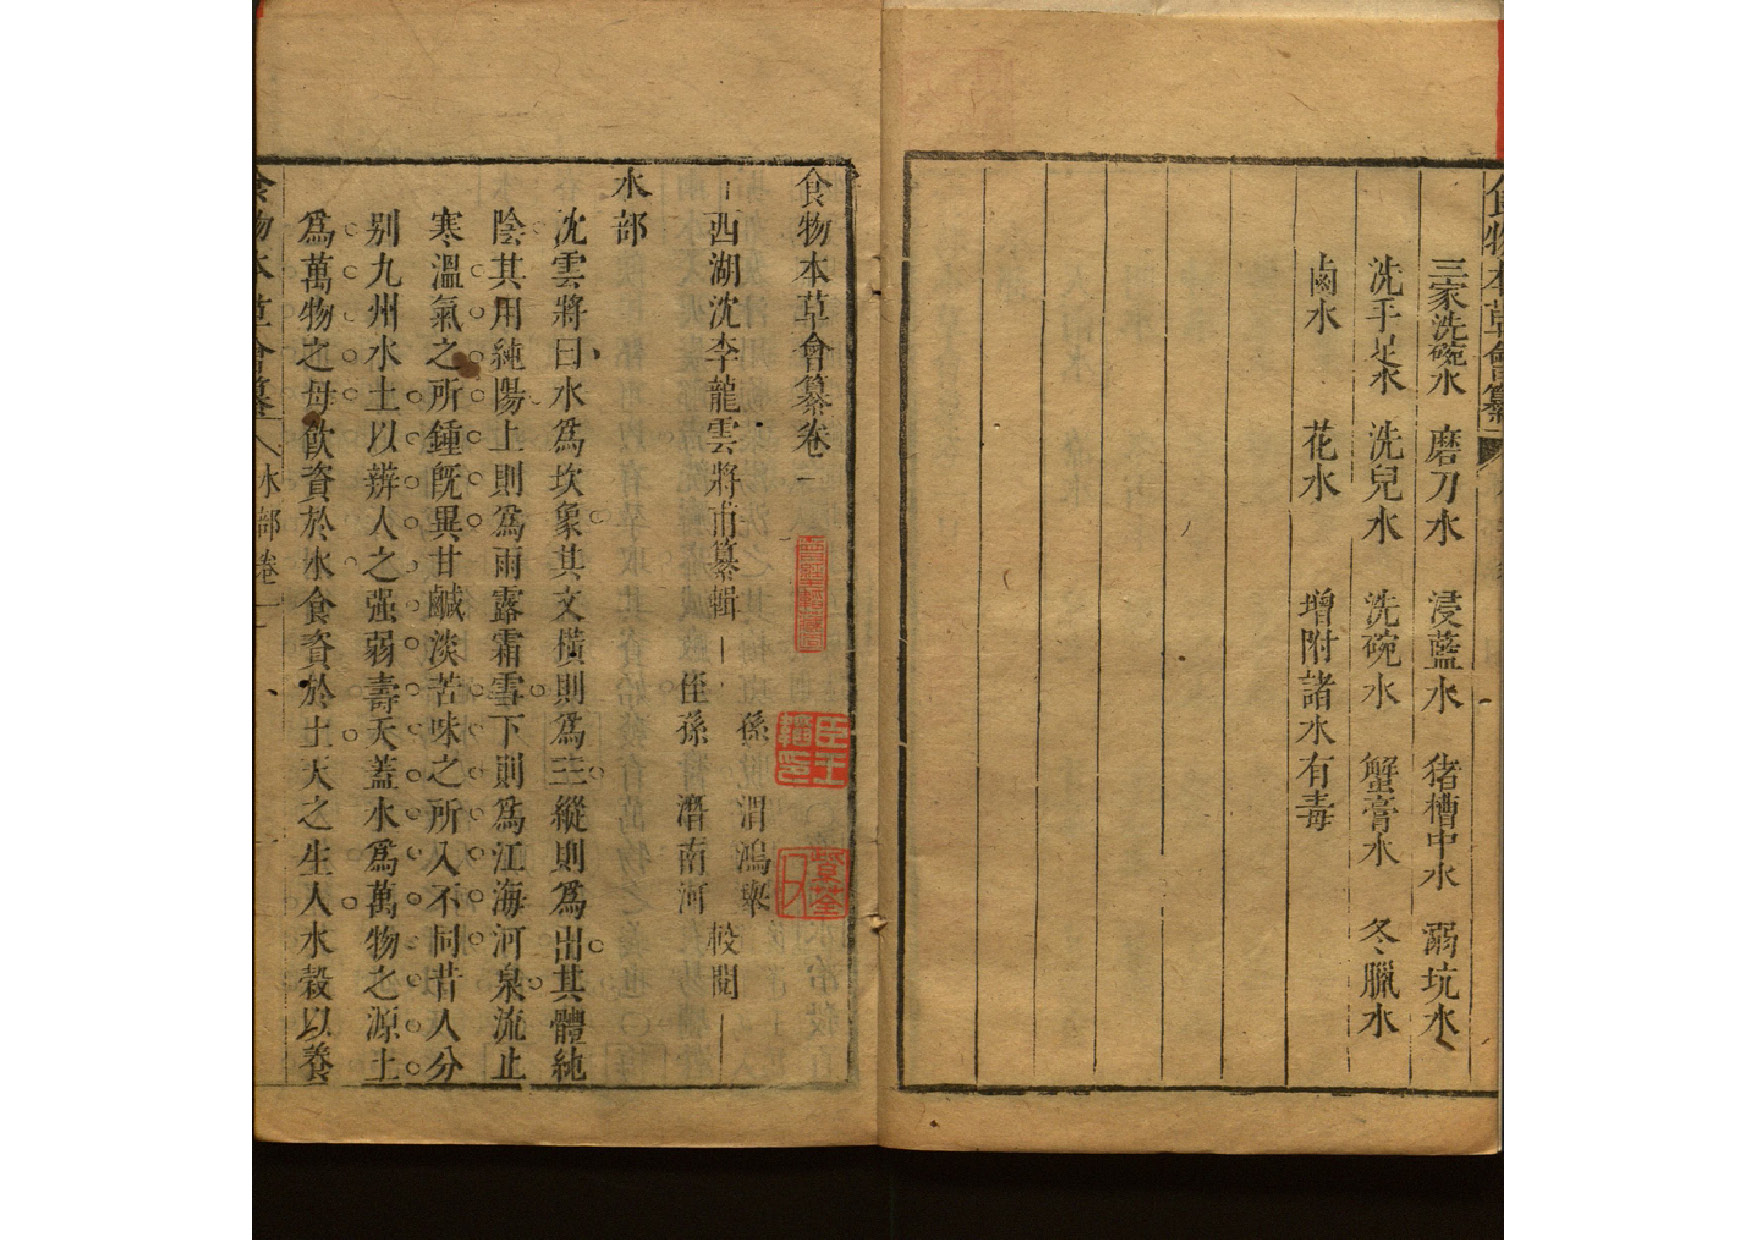 食物本草會纂
三家洗碗水 磨刀水 浸藍水 猪槽中水 溺坑水
洗手足水 洗兒水 洗碗水 蟹膏水 冬臘水
鹵水 花水 增附諸水有毒
食物本草會纂卷一
西湖沈李龍雲將甫纂輯 孫 渭鴻
侄孫 濳南河 校閱
水部
沈雲將曰水為坎象其文橫則為三縱則為出其體純
陰其用純陽上則為雨露霜雪下則為江海河泉流止
寒溫氣之所鍾旣異甘鹹淡苦味之所入不同昔人分
别九州水土以辨人之强弱壽夭蓋水為萬物之源土
為萬物之母飲資於水食資於土天之生人水穀以養
食物本草會纂 水部卷一